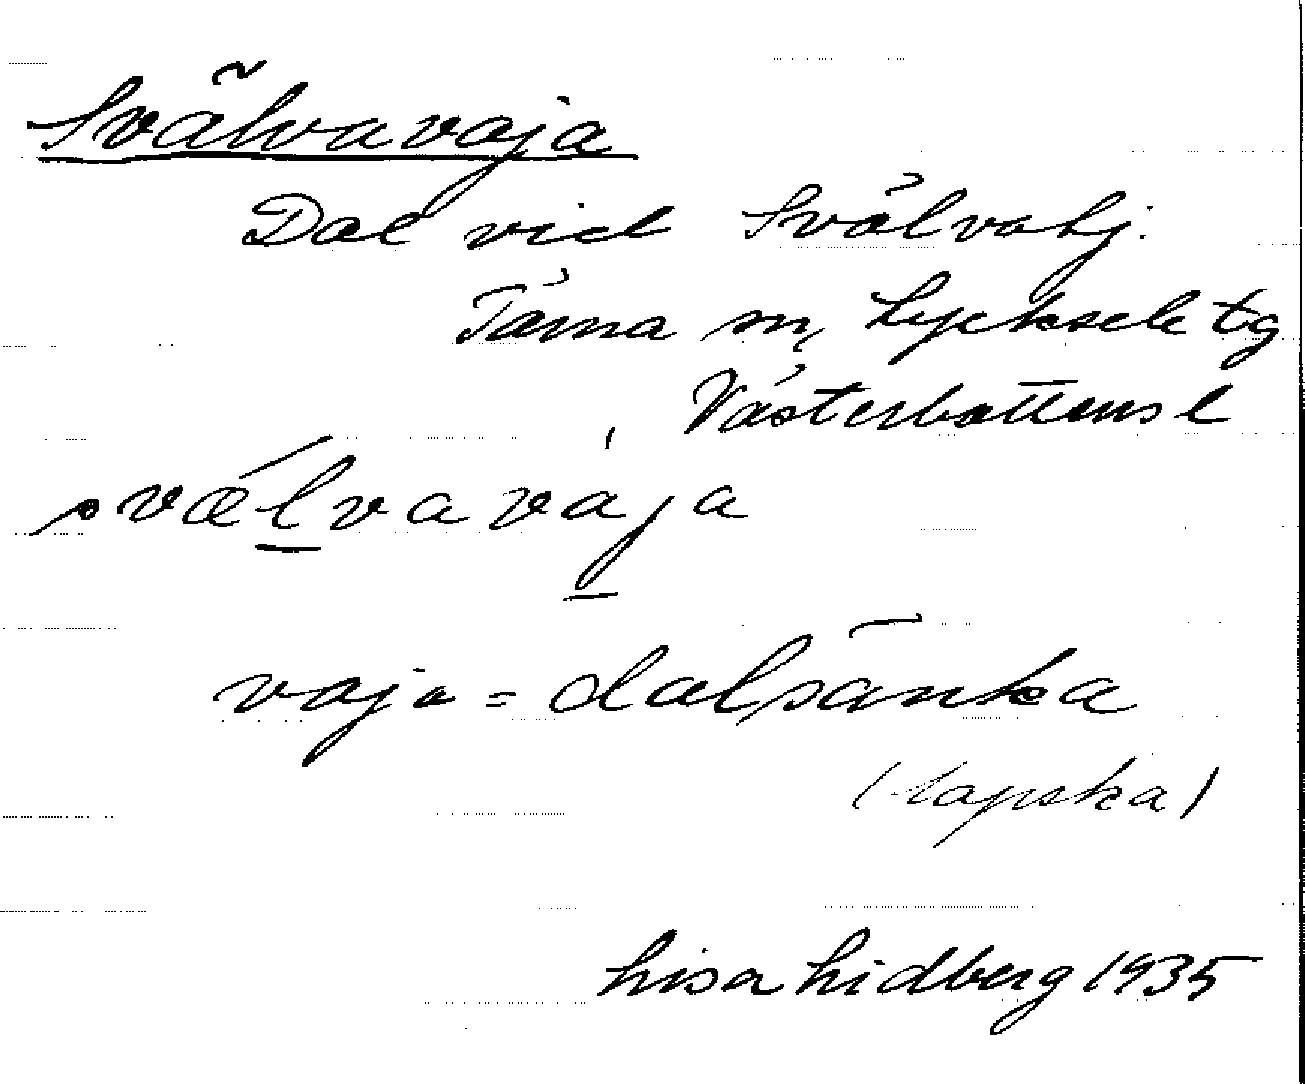 Svälvavaja
Dal vid Svälvahj.
Tärna sn, Lycksele tg
Västerbottens l
svæ´lvavàja
vaja = dalsänka
(lapska)
Lisa Lidberg 1935